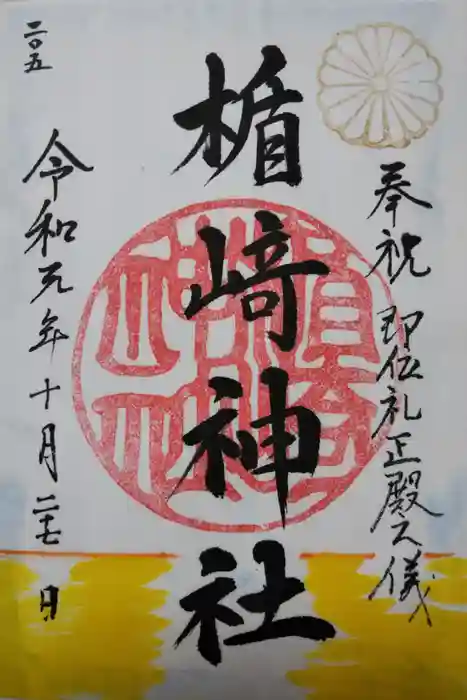 奉祝 即位礼正殿之儀
楯﨑神社
令和元年十月二十七日
二〇五